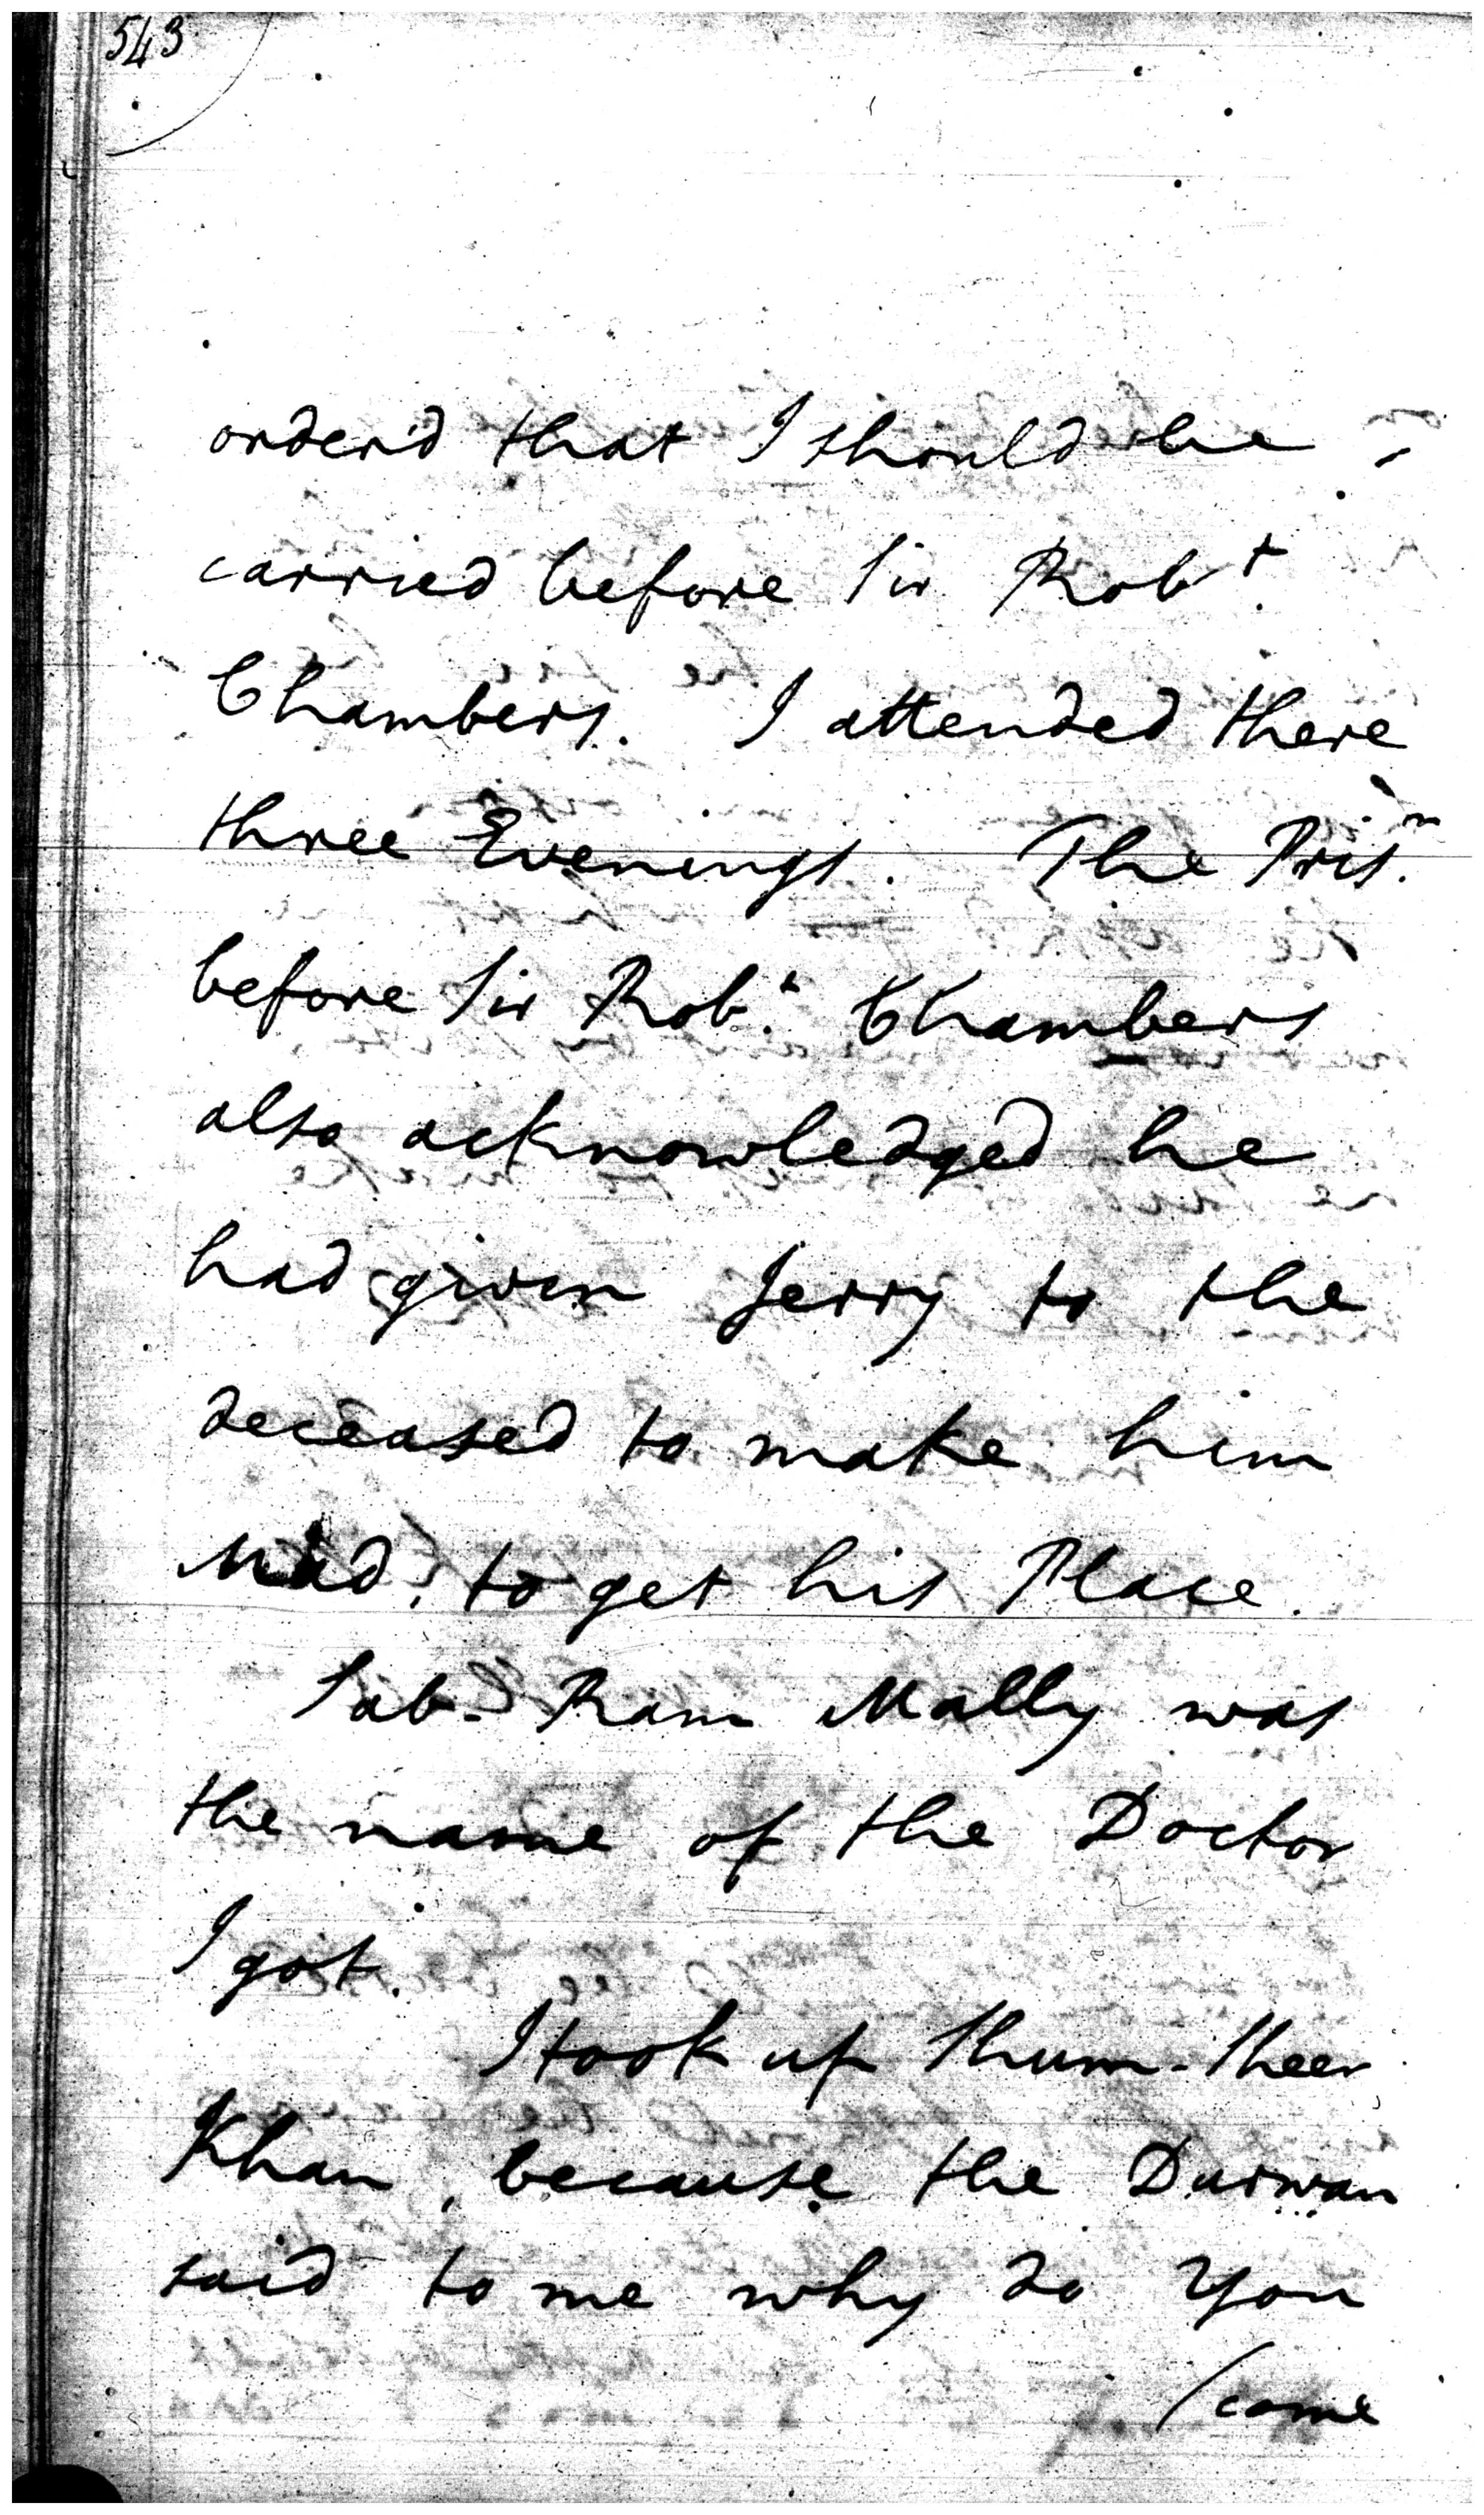 543
order'd that I should be -
carried before Sir Robt.
Chambers. I attended there
three Evenings. The Prisn.
before Sir Robt. Chambers
also acknowledged he
had given Jerry to the
deceased to make him
Mad, to get his Place.
Sab-Ram Mally was
the name of the Doctor
I got.
I took up Shum-Sheer
Khan, because the Durwan
said to me why do You
(come